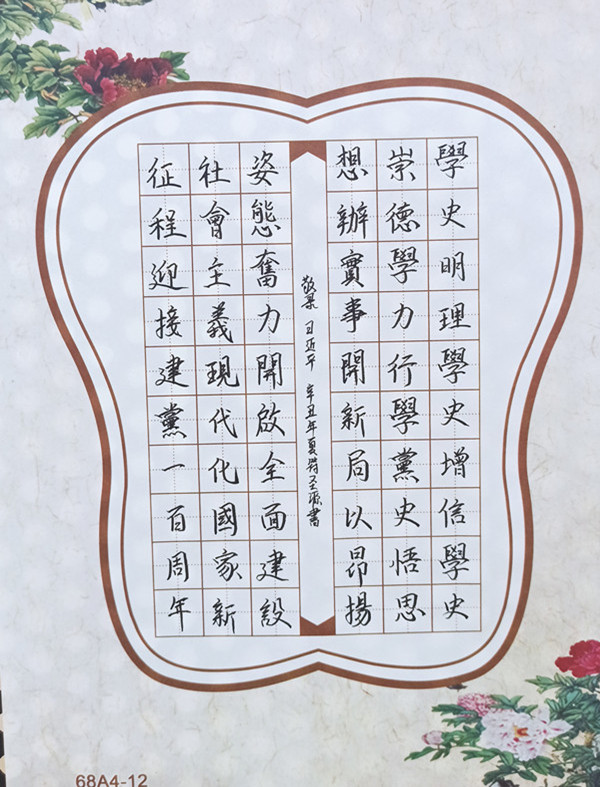 學史明理學史增信學史
崇德學力行學黨史悟思
想辦實事開新局以昂揚
敬录 习近平 辛丑年夏 书
姿態奮力開啟全面建設
社會主義現代化國家新
征程迎接建黨一百周年
68A4-12